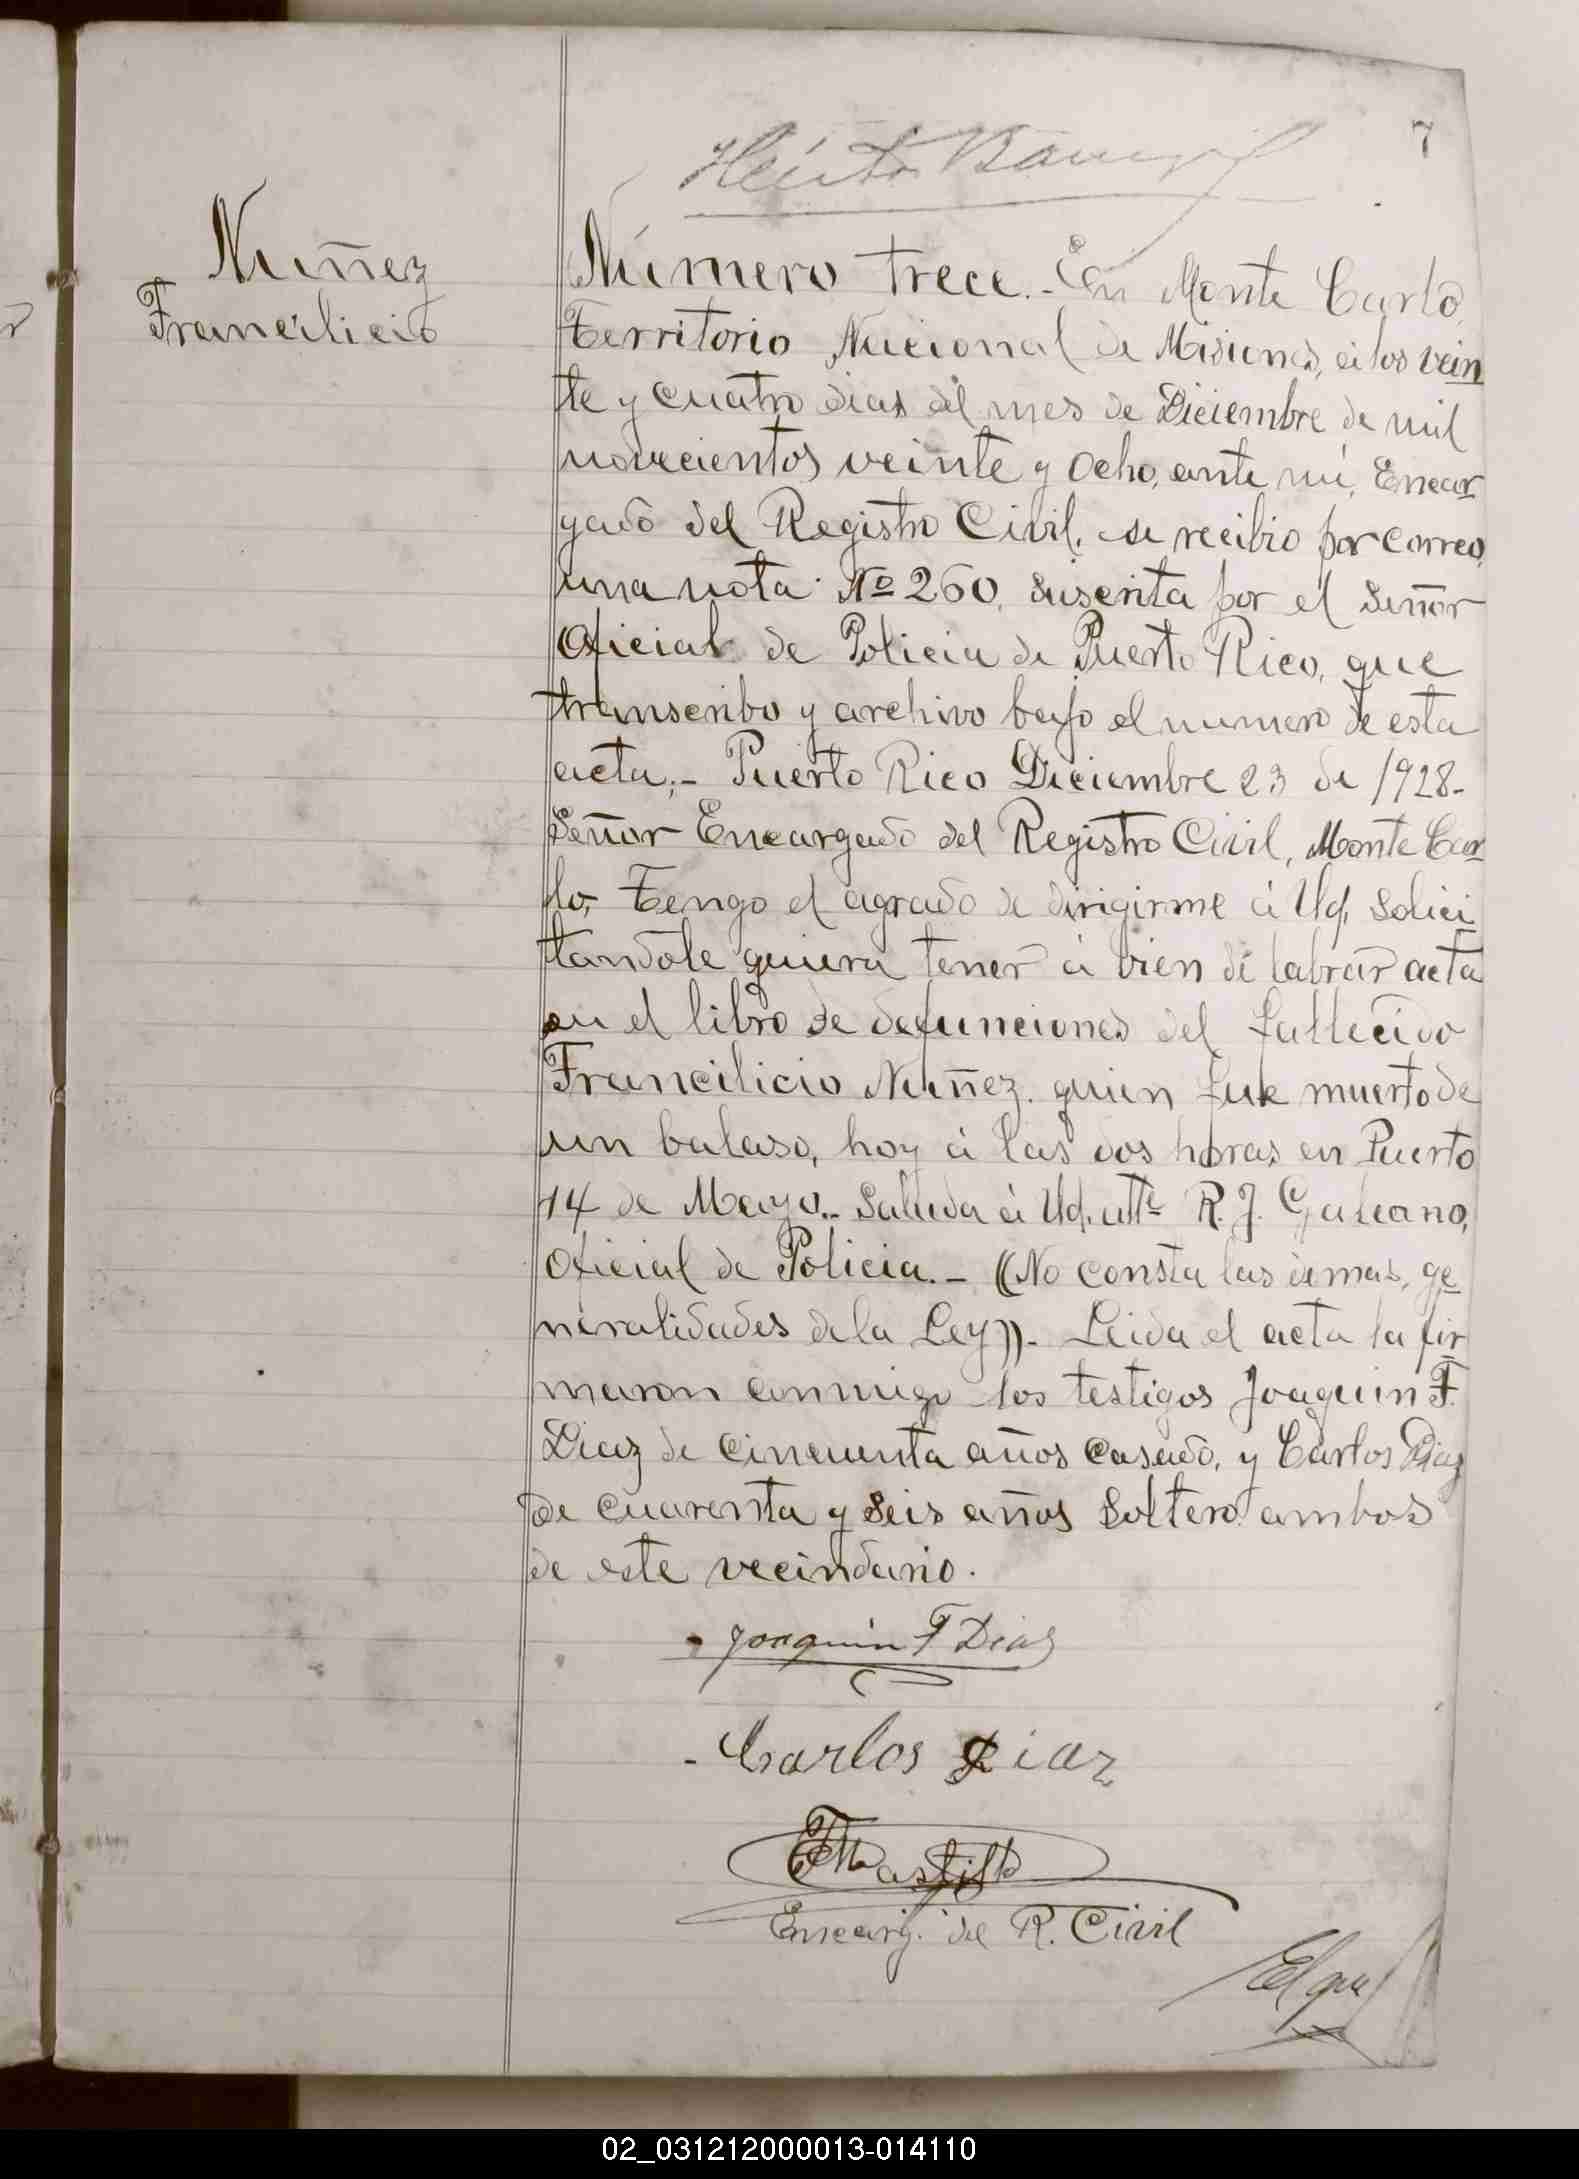 7
Nuñez
Francilicio
Número trece.- En Monte Carlo,
Territorio Nacional de Misiones, á los vein
te y cuatro dias del mes de Diciembre de mil
novecientos veinte y ocho, ante mí, Encar
gado del Registro Civil, se recibio por correo,
una nota Nº 260, suscrita por el Señor
Oficial de Policia de Puerto Rico, que
transcribo y archivo bajo el numero de esta
acta;- Puerto Rico Diciembre 23 de 1928-
Señor Encargado del Registro Civil, Monte Car
lo, Tengo el agrado de dirigirme á Ud, solici
tandole quiera tener á bien de labrar acta
en el libro de defunciones del fallecido
Francilicio Nuñez. quien fue muerto de
un balaso, hoy á las dos horas en Puerto
14 de Mayo.- Saluda á Ud. atte R. J. Galeano,
Oficial de Policia.- ((No consta las demas, ge
neralidades de la Ley)).- Leida el acta la fir
maron conmigo los testigos Joaquin F.
Diaz de cincuenta años casado, y Carlos Diaz
de cuarenta y seis años soltero ambos
de este vecindario.
Joaquin F Diaz
- Carlos Diaz
Encarg. del R. Civil
02_031212000013-014110